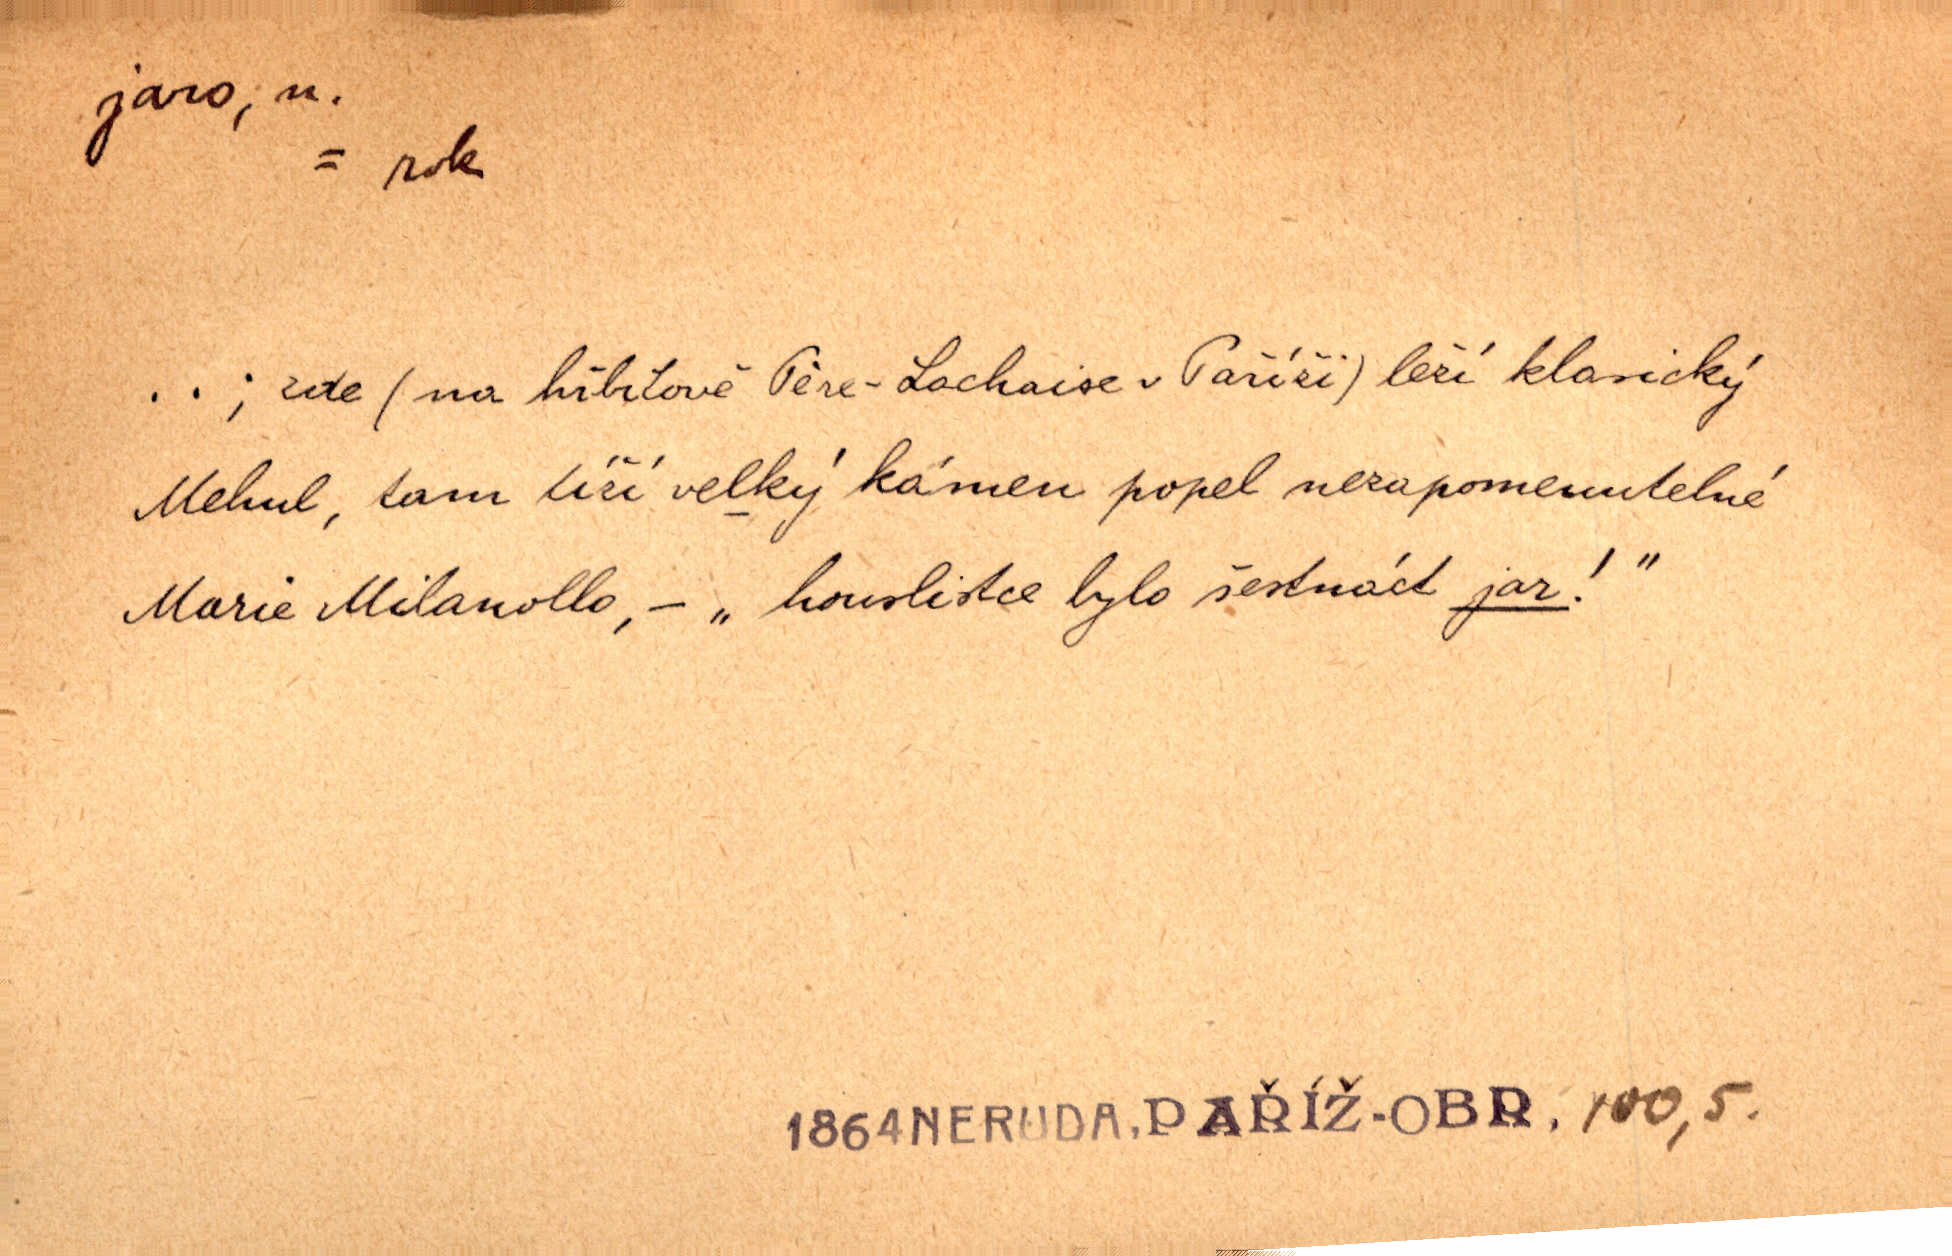 jaro, n.
= rok
. . ; zde (na hřbitově Père-Lachaise v Paříži) leží klasický
Mehul, tam tíží velký kámen popel nezapomenutelné
Marie Milanollo, – „houslistce bylo šestnáct jar!"
1864 NERUDA, PAŘÍŽ-OBR, 100,5.